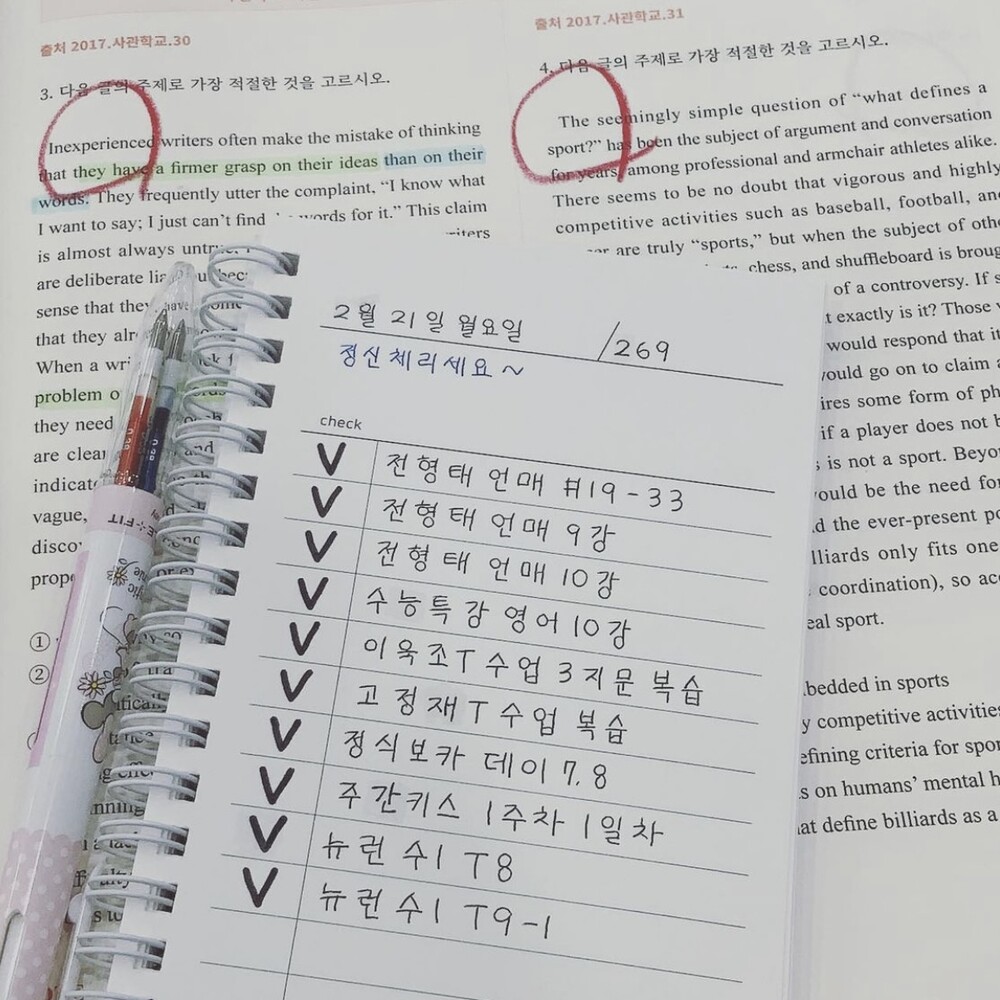 출처 2017.사관학교.30
3. 다음 글의 주제로 가장 적절한 것을 고르시오.
Inexperienced writers often make the mistake of thinking
that they have a firmer grasp on their ideas than on their
words. They frequently utter the complaint, “I know what
I want to say; I just can’t find words for it.” This claim
is almost always
are deliberate
sense that they have
that they
When a
problem
they need
are
vague,
①
②
출처 2017.사관학교.31
4. 다음 글의 주제로 가장 적절한 것을 고르시오.
The seemingly simple question of “what defines a
sport?” has been the subject of argument and conversation
for years, among professional and armchair athletes alike.
There seems to be no doubt that vigorous and highly
competitive activities such as baseball, football, and
are truly “sports,” but when the subject of
chess, and shuffleboard is
of a controversy. If
exactly is it? Those
would respond that it
would go on to claim
some form of
if a player does not
is not a sport.
would be the need for
the ever-present
only fits one
coordination), so
sport.
in sports
competitive activities
criteria for
on humans’ mental
that define billiards as a
2월 21일 월요일 /269
정신체리세요~
check
V 전형태 언매 #19-33
V 전형태 언매 9강
V 전형태 언매 10강
V 수능특강 영어 10강
V 이욱조T 수업 3지문 복습
V 고정재T 수업 복습
V 정식보카 데이 7, 8
V 주간키스 1주차 1일차
V 뉴런 수1 T8
V 뉴런 수1 T9-1